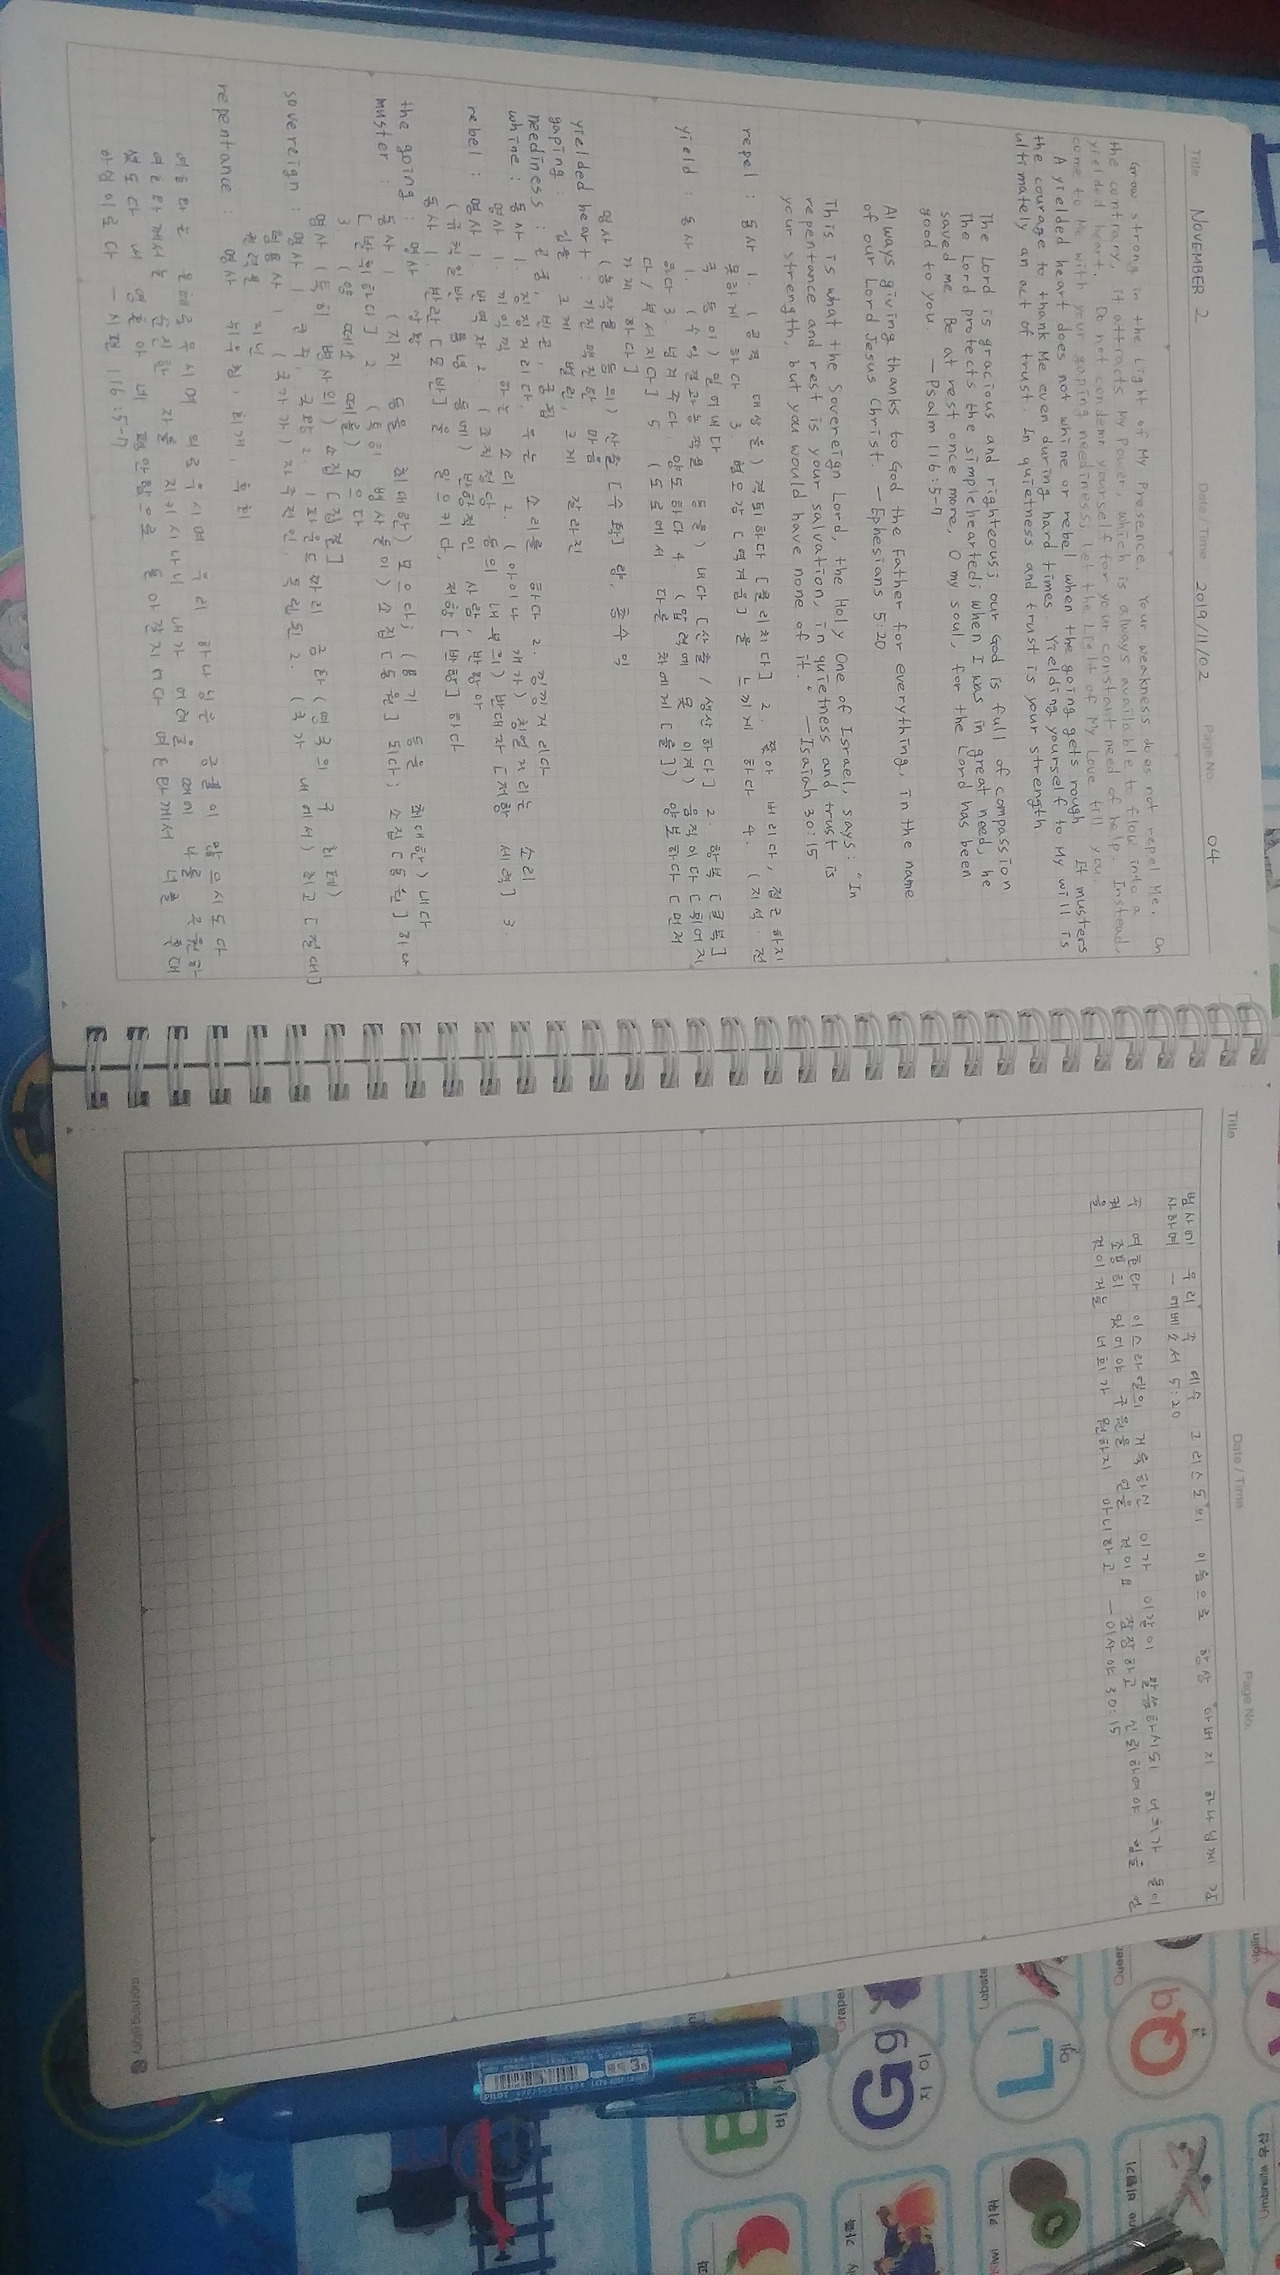 Title NOVEMBER 2 Date / Time 2019/11/02 Page No. 04
Grow strong in the Light of My Presence. Your weakness does not repel Me. On
the contrary, it attracts My Power, which is always available to flow into a
yielded heart. Do not condemn yourself for your constant need of help. Instead,
come to Me with your gaping neediness; let the Light of My Love fill you
A yielded heart does not whine or rebel when the going gets rough It musters
the courage to thank Me even during hard times. Yielding yourself to My will is
ultimately an act of trust. In quietness and trust is your strength
The Lord is gracious and righteous; our God is full of compassion
The Lord protects the simplehearted; when I was in great need, he
saved me Be at rest once more, O my soul, for the Lord has been
good to you. — Psalm 116:5-7
Always giving thanks to God the Father for everything, in the name
of our Lord Jesus Christ. — Ephesians 5:20
This is what the Sovereign Lord, the Holy One of Israel, says: "In
repentance and rest is your salvation, in quietness and trust is
your strength, but you would have none of it." — Isaiah 30:15
repel : 동사 1. (공격 대상을) 격퇴하다 [물리치다] 2. 쫓아 버리다, 접근하지
못하게 하다 3. 혐오감 [역겨움]을 느끼게 하다 4. (자석·전
극 등이) 밀어내다
yield : 동사 1. (수익·결과·농작물 등을) 내다 [산출/생산하다] 2. 항복 [굴복]
하다 3. 넘겨주다, 양도하다 4. (압력에 못 이겨) 움직이다 [휘어지
다/부서지다] 5 (도로에서 다른 차에게[를]) 양보하다 [먼저
가게 하다]
명사 (농작물 등의) 산출[수확]량, 총수익
yielded heart : 기진맥진한 마음
gaping : 입을 크게 벌린, 크게 갈라진
neediness : 곤궁, 빈곤, 궁핍
whine : 동사 1. 칭얼거리다, 우는 소리를 하다 2. 낑낑거리다
명사 1. 끼익끽 하는 소리 2. (아이나 개가) 칭얼거리는 소리
rebel : 명사 1. 반역자 2. (조직·정당 등의 내부의) 반대자 [저항 세력] 3
(규칙·일반 통념 등에) 반항적인 사람, 반항아
동사 1. 반란[모반]을 일으키다, 저항[반항]하다
the going : 명사 상황
muster : 동사 1 (지지 등을 최대한) 모으다; (용기 등을 최대한) 내다
[발휘하다] 2 (특히 병사들이) 소집[동원] 되다; 소집[동원]하다
3 (양 떼·소 떼를) 모으다
명사 (특히 병사의) 소집[집결]
sovereign : 명사 1 군주, 국왕 2. 1파운드짜리 금화 (영국의 구 화폐)
형용사 1 (국가가) 자주적인, 독립된 2. (국가 내에서) 최고[절대]
권력을 지닌
repentance : 명사 뉘우침, 회개, 후회
여호와는 은혜로우시며 의로우시며 우리 하나님은 긍휼이 많으시도다
여호와께서는 순진한 자를 지키시나니 내가 어려울 때에 나를 구원하
셨도다 내 영혼아 네 평안함으로 돌아갈지어다 여호와께서 너를 후대
하심이로다 — 시편 116:5-7
Title Date / Time Page No.
범사에 우리 주 예수 그리스도의 이름으로 항상 아버지 하나님께 감
사하며 — 에베소서 5:20
주 여호와 이스라엘의 거룩하신 이가 이같이 말씀하시되 너희가 돌이
켜 조용히 있어야 구원을 얻을 것이요 잠잠하고 신뢰하여야 힘을 얻
을 것이거늘 너희가 원하지 아니하고 — 이사야 30:15
PILOT
Gg
지 Grape
Ll
엘
Qq
큐
Queen
Violin
Umbrella 우산
키위